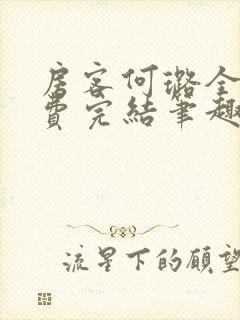 房客何璐全
费完结笔趣
流星下的願望